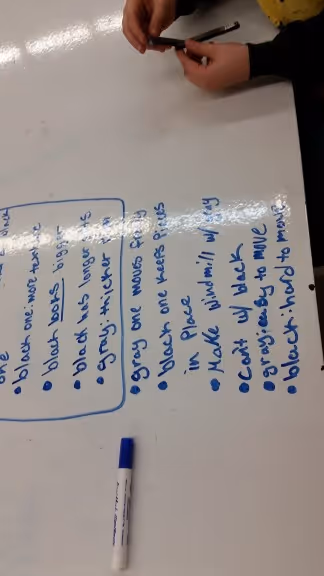 one
• black one: more texture
• black looks bigger
• black has longer
• gray: thicker
• gray one moves freely
• black one keeps pieces
in place
• Make windmill w/ gray
• Can't w/ black
• gray: easy to move
• black: hard to move